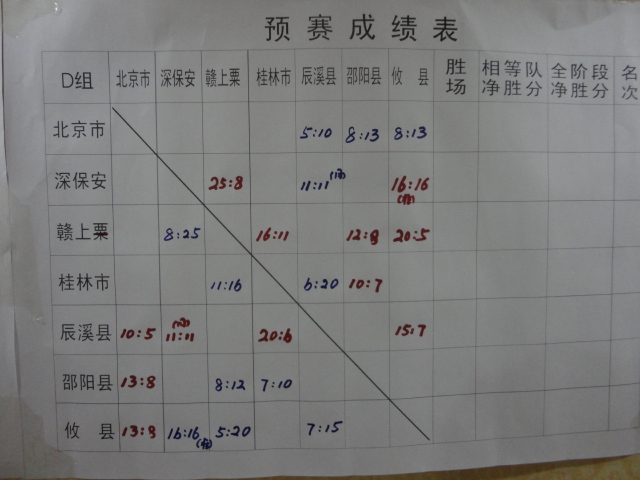 预赛成绩表
D组 北京市 深保安 赣上栗 桂林市 辰溪县 邵阳县 攸县 胜场 相等队净胜分 全阶段净胜分 名次
北京市 5:10 8:13 8:13
深保安 25:8 11:11 16:16
赣上栗 8:25 16:11 12:8 20:5
桂林市 11:16 6:20 10:7
辰溪县 10:5 11:11 20:6 15:7
邵阳县 13:8 8:12 7:10
攸县 13:8 16:16 5:20 7:15